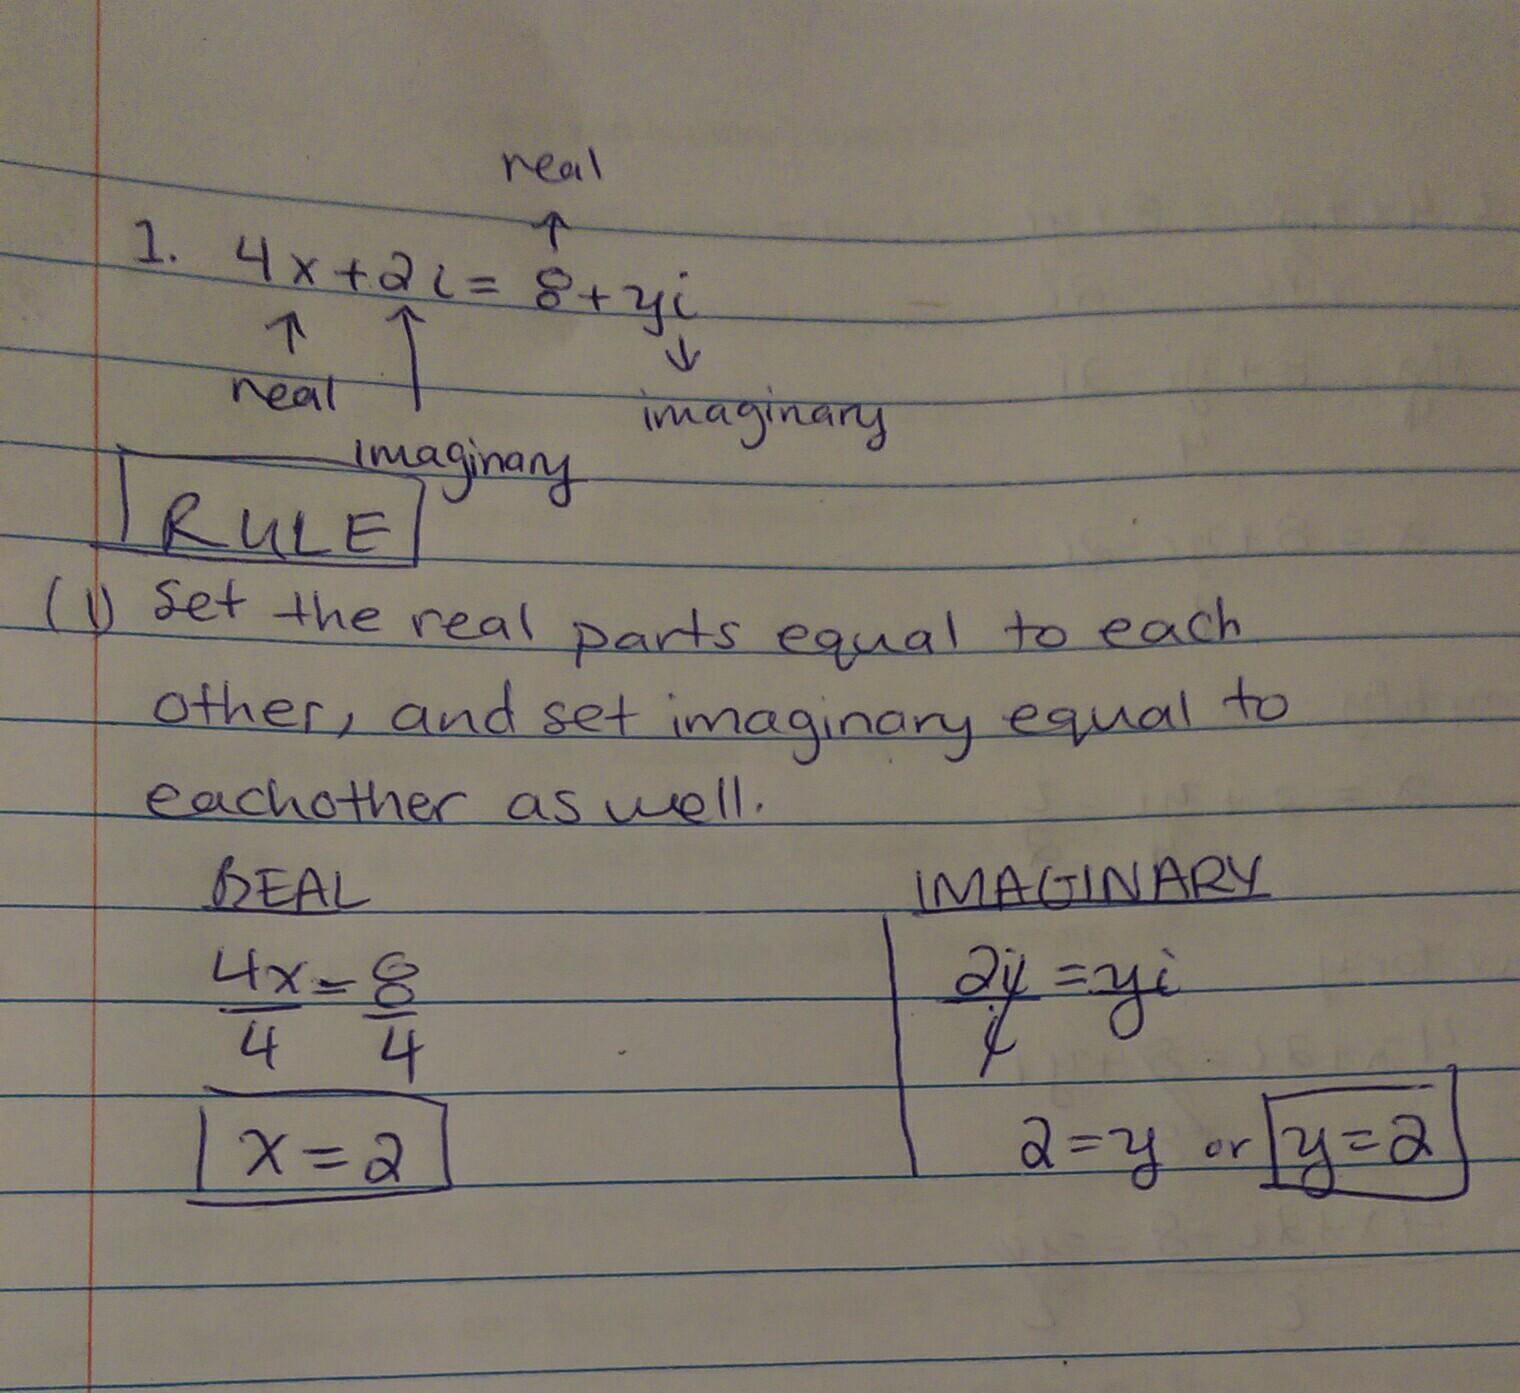 real
↑
1. 4x+2i = 8+yi
↑ ↑ ↓
real imaginary
imaginary
RULE
(1) Set the real parts equal to each
other, and set imaginary equal to
eachother as well.
REAL IMAGINARY
4x = 8 2i = yi
4 4 i
x = 2 2 = y or y = 2